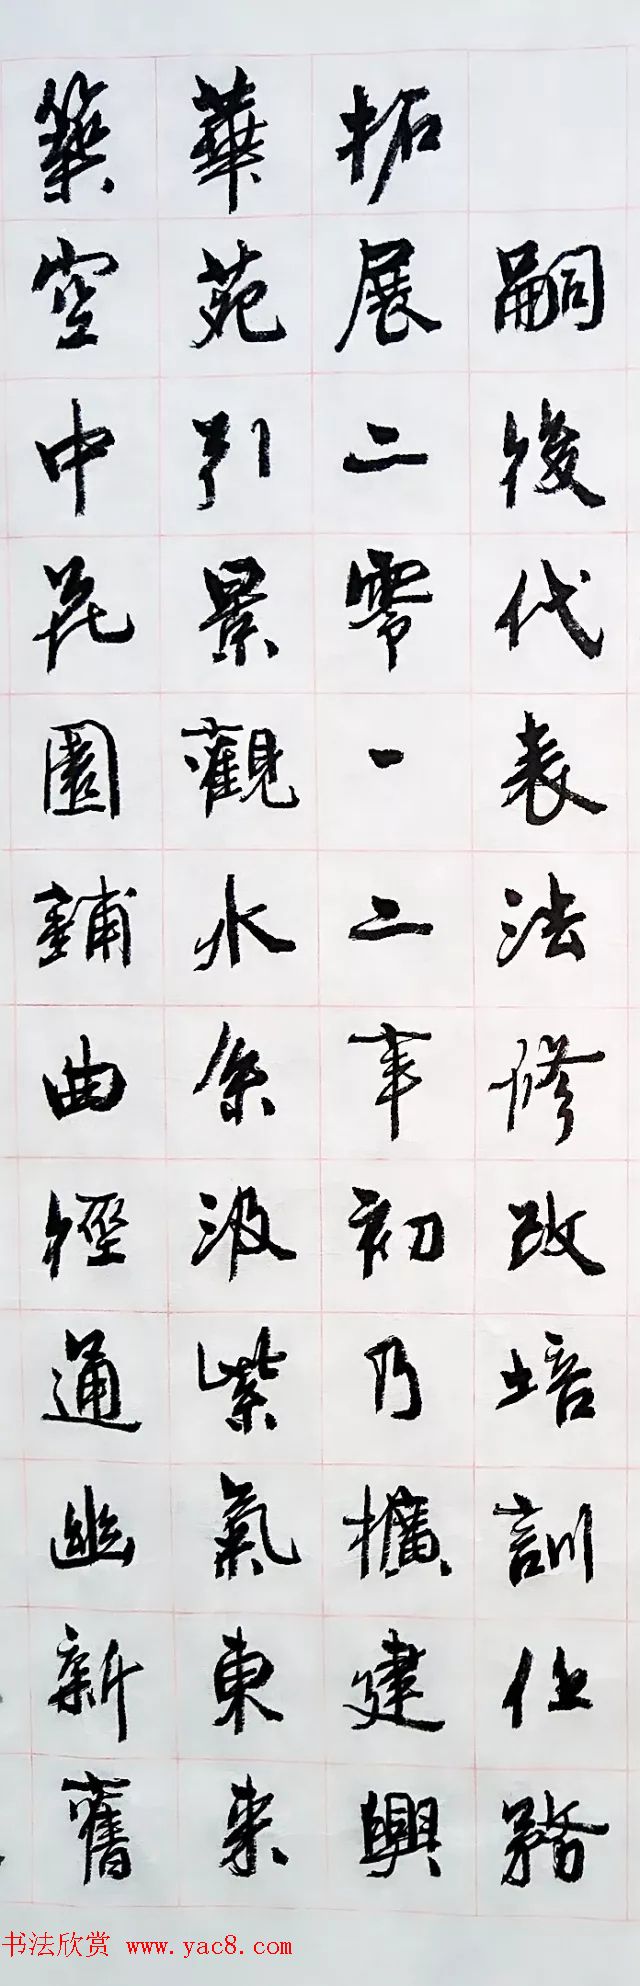 嗣後代表法修改培訓任務
拓展二零一二年初乃擴建興
華苑引景觀水系汲紫氣東來
築空中花園鋪曲徑通幽新舊
书法欣赏 www.yac8.com